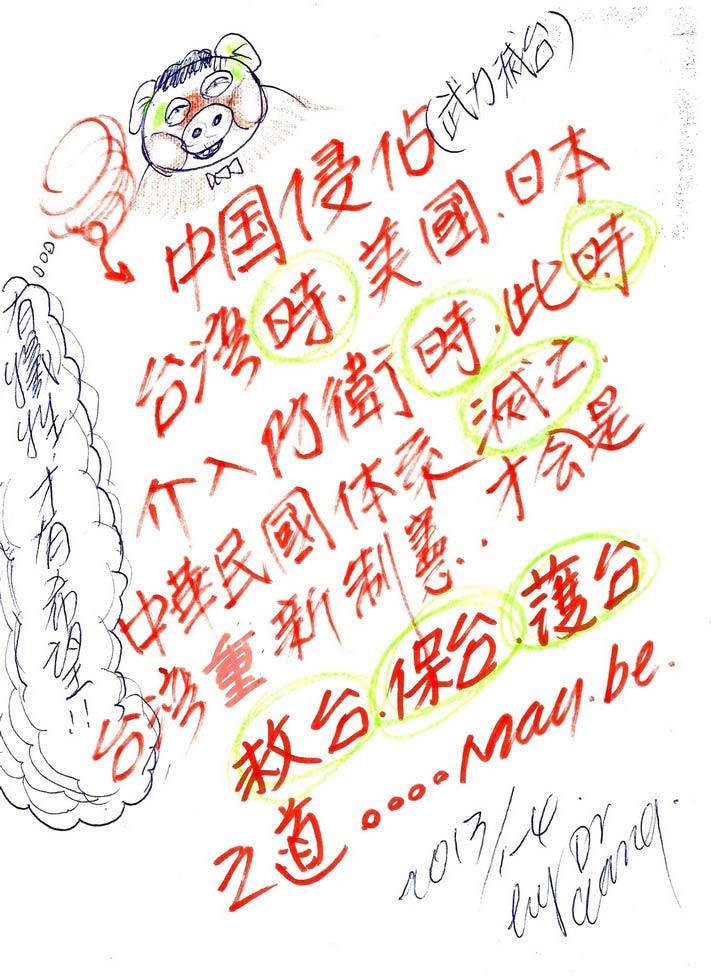 中国侵佔(武力裓台)
台灣時.美國.日本
介入防衛時.此時
中華民國体系滅亡.
台灣重新制憲..才会是
救台.保台.護台
之道....May.be.
有犧牲.才有希望!!
2013/1-4
by Dr